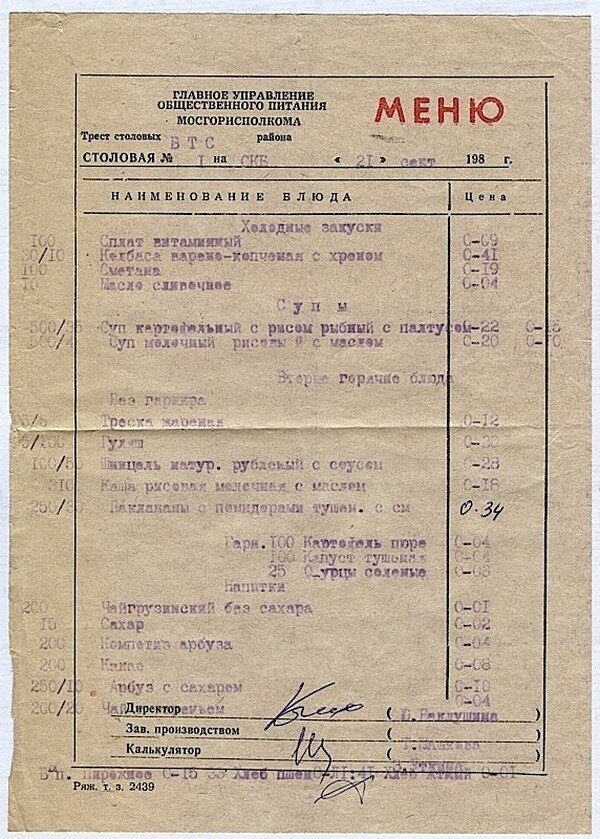 ГЛАВНОЕ УПРАВЛЕНИЕ
ОБЩЕСТВЕННОГО ПИТАНИЯ
МОСГОРИСПОЛКОМА
МЕНЮ
Трест столовых ВТС района
СТОЛОВАЯ № I на СКБ « 21 » сент 198 г.
НАИМЕНОВАНИЕ БЛЮДА Цена
Холодные закуски
100 Сплат витаминный 0-09
30/10 Колбаса варено-копченая с хреном 0-41
100 Сметана 0-19
10 Масло сливочное 0-04
Супы
500/35 Суп картофельный с рисом рыбный с палтусом 0-22 0-15
500/4 Суп молочный рисовый с маслом 0-20 0-10
Вторые горячие блюда
Без гарнира
Треска жареная 0-12
Гуляш 0-20
100/50 Шницель натур. рубленый с соусом 0-28
310 Каша рисовая молочная с маслом 0-18
250/30 Баклажаны с помидорами тушен. с см 0-34
Гарн. 100 Картофель пюре 0-04
100 Капуст тушеная 0-04
25 О_урцы соленые 0-03
Напитки
200 Чайгрузинский без сахара 0-01
15 Сахар 0-02
200 Компотиз арбуза 0-04
200 Какао 0-08
250/10 Арбуз с сахаром 0-10
200/25 Чай 0-04
Директор ( О. Баклушина )
Зав. производством ( )
Калькулятор ( )
Пирожное 0-15 33 Хлеб 0-01
Ряж. т. з. 2439